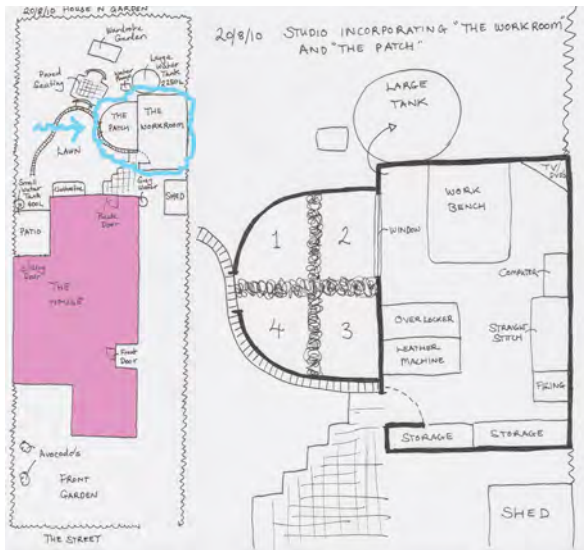 20/8/10 HOUSE N GARDEN
Wardrobe
Garden
Paved
Seating
Water
Large
Water
Tank
2250L
THE
PATCH
THE
WORKROOM
LAWN
Small
Water
Tank
Clothesline
Grey
Water
SHED
PATIO
Back
Door
Sliding
Door
THE
HOUSE
Front
Door
Avocado's
FRONT
GARDEN
THE STREET
20/8/10 STUDIO INCORPORATING "THE WORKROOM"
AND "THE PATCH"
LARGE
TANK
TV/
DVD
WORK
BENCH
1
2
WINDOW
COMPUTER
4
3
OVERLOCKER
LEATHER
MACHINE
STRAIGHT
STITCH
STORAGE
STORAGE
SHED